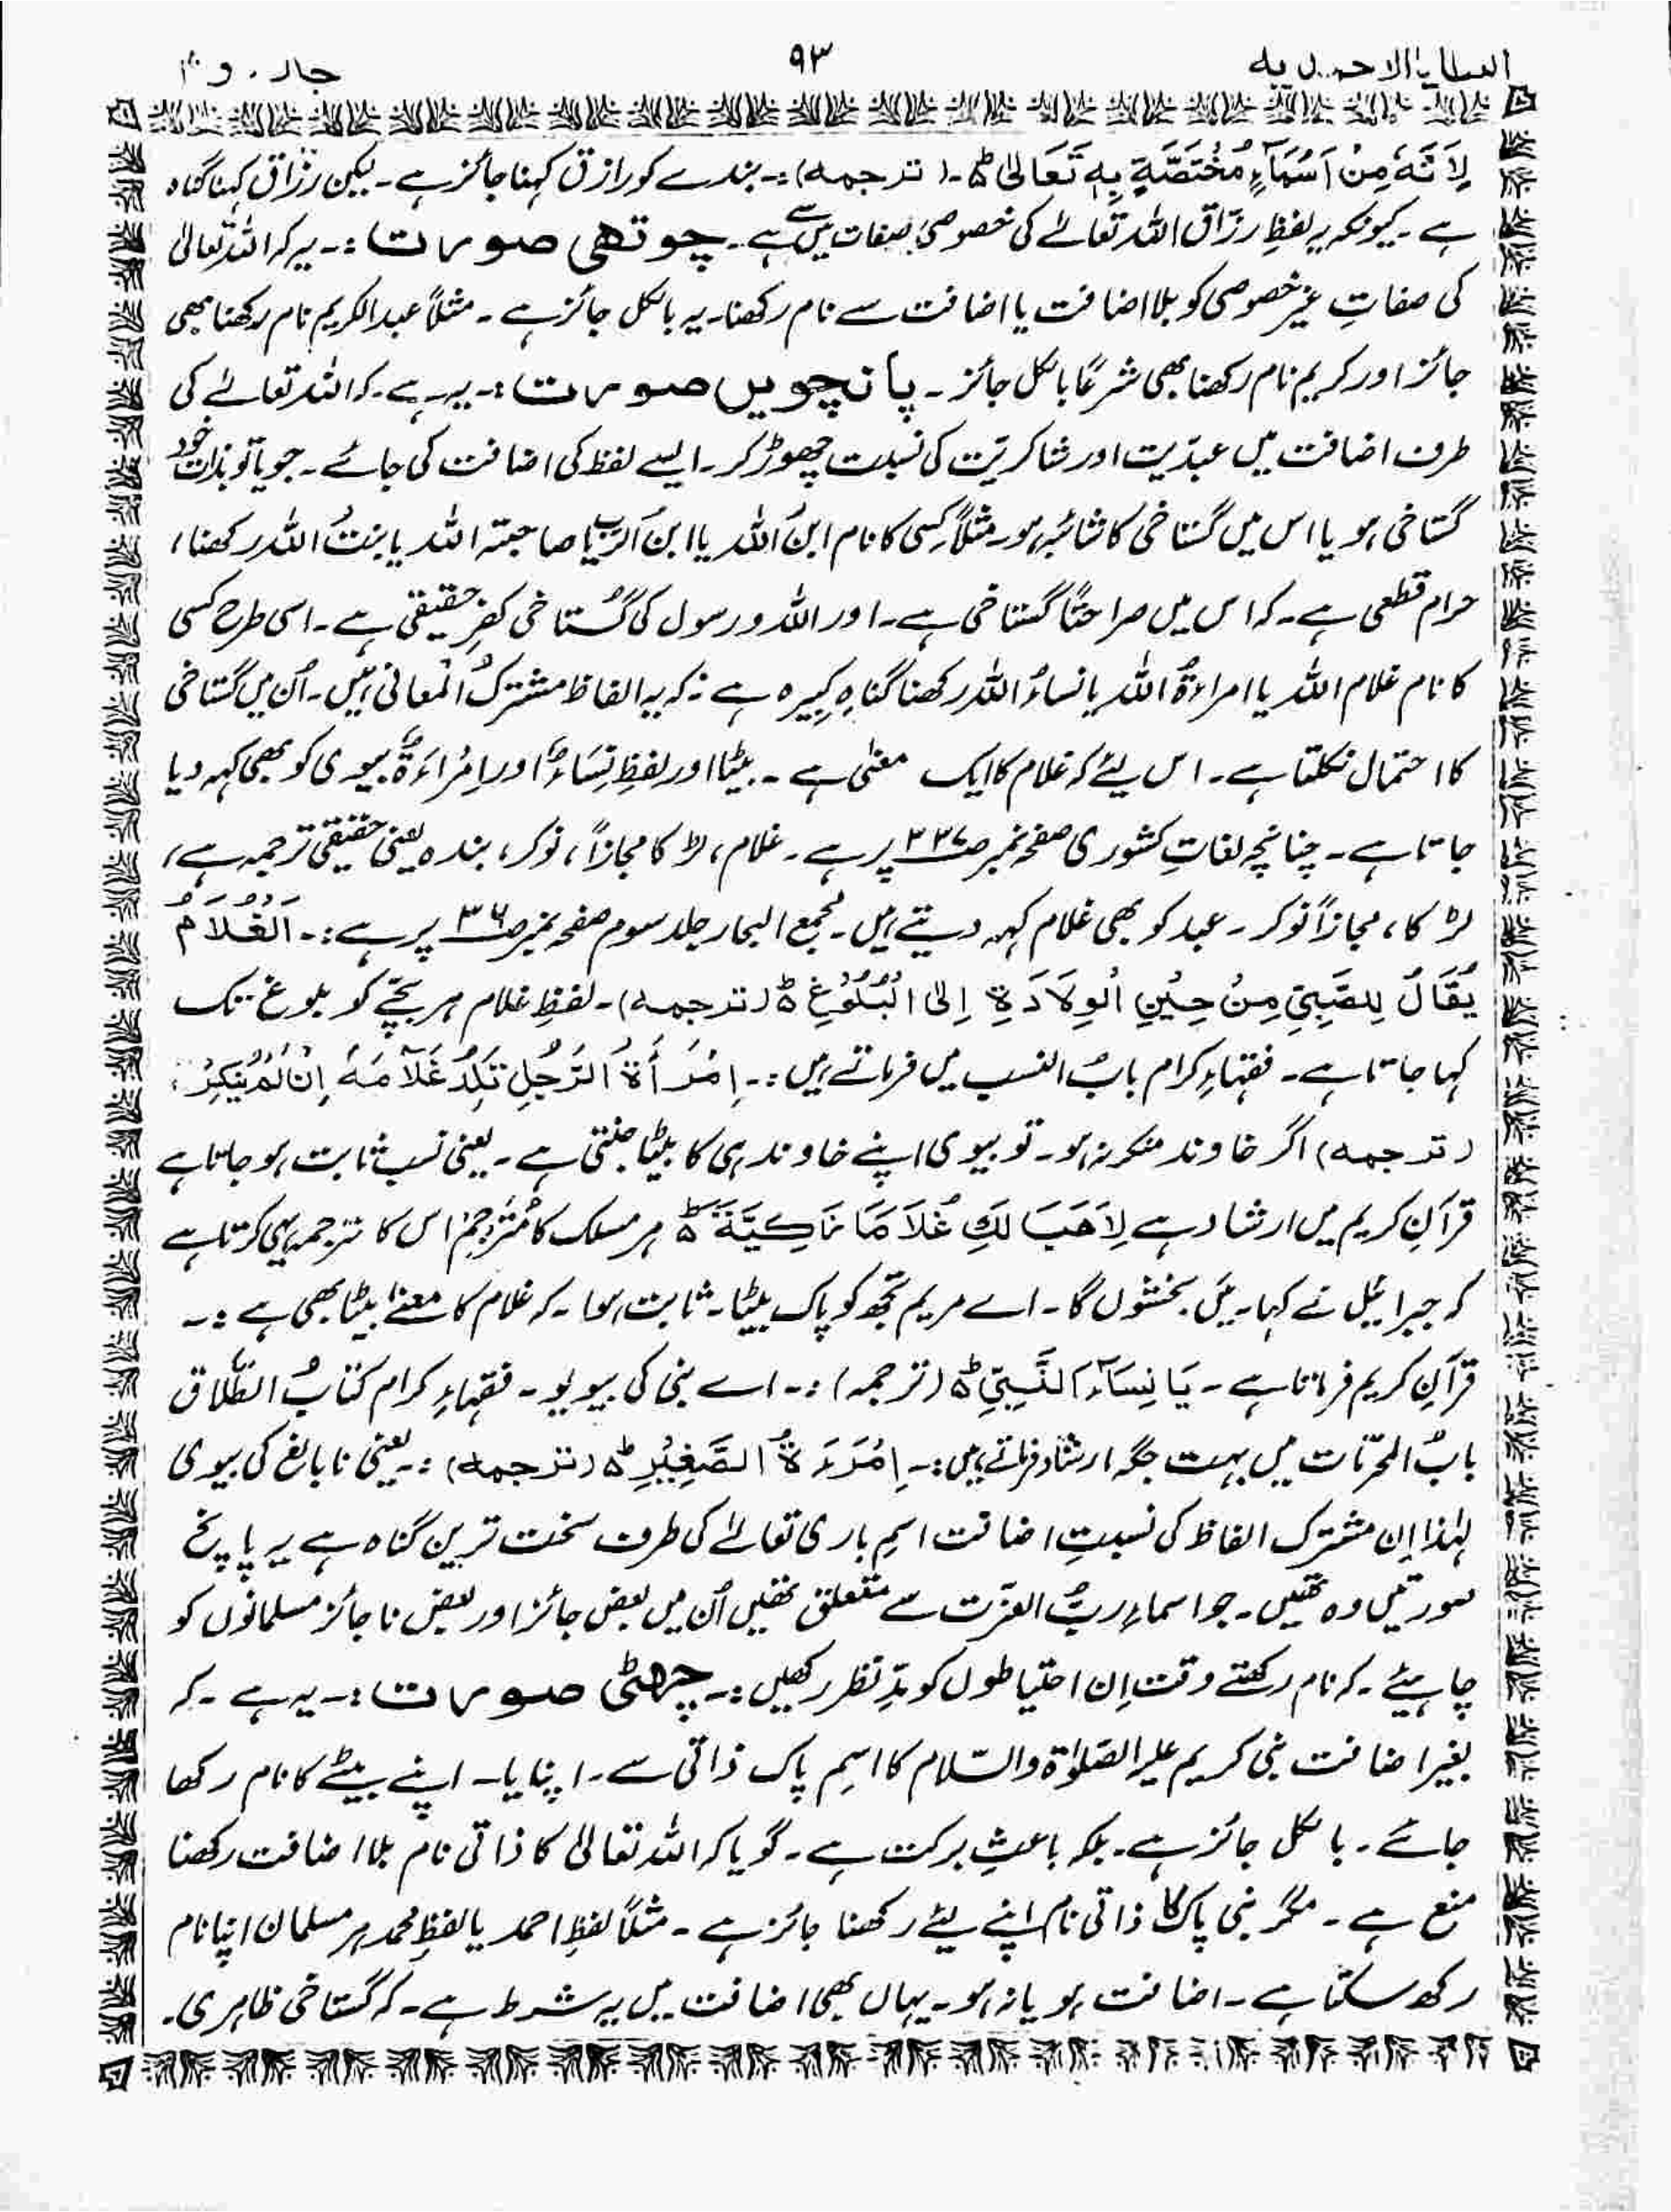 العطایا الاحمدیہ
۹۳
جلد دوم
لِاَنَّهٗ مِنْ اَسْمَآءٍ مُخْتَصَّةٍ بِهٖ تَعَالیٰ ط۔ (ترجمہ):۔ بندے کو رازق کہنا جائز ہے۔ لیکن رزّاق کہنا گناہ
ہے۔ کیونکہ یہ لفظِ رزّاق اللہ تعالےٰ کی خصوصی صفات میں سے ہے۔ چوتھی صورت:۔ یہ کہ اللہ تعالیٰ
کی صفاتِ غیر خصوصی کو بلا اضافت یا اضافت سے نام رکھنا۔ یہ بالکل جائز ہے۔ مثلاً عبدالکریم نام رکھنا بھی
جائز اور کریم نام رکھنا بھی شرعًا بالکل جائز۔ پانچویں صورت:۔ یہ ہے۔ کہ اللہ تعالےٰ کی
طرف اضافت میں عبدیّت اور شاکریّت کی نسبت چھوڑ کر۔ ایسے لفظ کی اضافت کی جائے۔ جو یا تو بذات خود
گستاخی ہو یا اس میں گستاخی کا شائبہ ہو۔ مثلاً کسِی کا نام ابنُ اللہ یا ابنُ الرّب یا صاحبتہ اللہ یا بنتُ اللہ رکھنا،
حرام قطعی ہے۔ کہ اس میں صراحتًا گستاخی ہے۔ اور اللہ و رسول کی گُستاخی کفرِ حقیقی ہے۔ اسی طرح کسی
کا نام غلام اللہ یا امراءۃُ اللہ یا نساءُ اللہ رکھنا گناہِ کبیرہ ہے: کہ یہ الفاظ مشترکُ المعانی ہیں۔ اُن میں گستاخی
کا احتمال نکلتا ہے۔ اس لیئے کہ غلام کا ایک معنٰی ہے۔ بیٹا اور لفظِ نِسَاءٌ اور اِمْرَاءَۃٌ بیوی کو بھی کہہ دیا
جاتا ہے۔ چنانچہ لغاتِ کشوری صفحہ نمبر ص۳۳۷ پر ہے۔ غلام، لڑکا مجازاً، نوکر، بندہ یعنی حقیقی ترجمہ ہے،
لڑکا، مجازاً نوکر۔ عبد کو بھی غلام کہہ دیتے ہیں۔ مجمع البحار جلد سوم صفحہ نمبر ص۳۶ پر ہے:۔ اَلْغُلَامُ
یُقَالُ لِلصَّبِیِّ مِنْ حِیْنِ الْوِلَادَةِ اِلیٰ الْبُلُوْغِ ط (ترجمہ)۔ لفظِ غلام ہر بچّے کو بلوغ تک
کہا جاتا ہے۔ فقہاءِ کرام بابُ النسب میں فرماتے ہیں:۔ اِمْرَأَةُ الرَّجُلِ تَلِدُ غُلَامَهٗ اِنْ لَمْ یُنْکِرْ:
(ترجمہ) اگر خاوند منکر نہ ہو۔ تو بیوی اپنے خاوند ہی کا بیٹا جنتی ہے۔ یعنی نسب ثابت ہو جاتا ہے
قرآنِ کریم میں ارشاد ہے لِاَهَبَ لَكِ غُلَامًا زَكِیَّةً ط ہر مسلک کا مُترَجِمْ اس کا ترجمہ یہی کرتا ہے
کہ جبرائیل نے کہا۔ میَں بخشوں گا۔ اے مریم تجھ کو پاک بیٹا۔ ثابت ہوا۔ کہ غلام کا معنےٰ بیٹا بھی ہے:۔
قرآنِ کریم فرماتا ہے۔ یَا نِسَآءَ النَّبِیِّ ط (ترجمہ):۔ اے نبی کی بیویو۔ فقہاءِ کرام کتابُ الطّلاق
بابُ المحرّمات میں بہت جگہ ارشاد فرماتے ہیں:۔ اِمْرَءَةُ الصَّغِیْرِ ط (ترجمہ):۔ یعنی نابالغ کی بیوی
لہٰذا اِن مشترک الفاظ کی نسبتِ اضافت اسمِ باری تعالےٰ کی طرف سخت ترین گناہ ہے یہ پانچ
صورتیں وہ تھیں۔ جو اسماءِ ربُّ العزّت سے متعلق تھیں اُن میں بعض جائز اور بعض ناجائز مسلمانوں کو
چاہیئے۔ کہ نام رکھتے وقت اِن احتیاطوں کو مدِّ نظر رکھیں:۔ چھٹی صورت:۔ یہ ہے۔ کہ
بغیر اضافت نبی کریم علیہ الصّلوٰۃ والسّلام کا اسِم پاک ذاتی سے۔ اپنایا۔ اپنے بیٹے کا نام رکھا
جائے۔ بالکل جائز ہے۔ بلکہ باعثِ برکت ہے۔ گویا کہ اللہ تعالیٰ کا ذاتی نام بلا اضافت رکھنا
منع ہے۔ مگر نبی پاک کا ذاتی نام اپنے لیئے رکھنا جائز ہے۔ مثلاً لفظِ احمد یا لفظِ محمد ہر مسلمان اپنا نام
رکھ سکتا ہے۔ اضافت ہو یا نہ ہو۔ یہاں بھی اضافت میں یہ شرط ہے۔ کہ گستاخی ظاہری۔